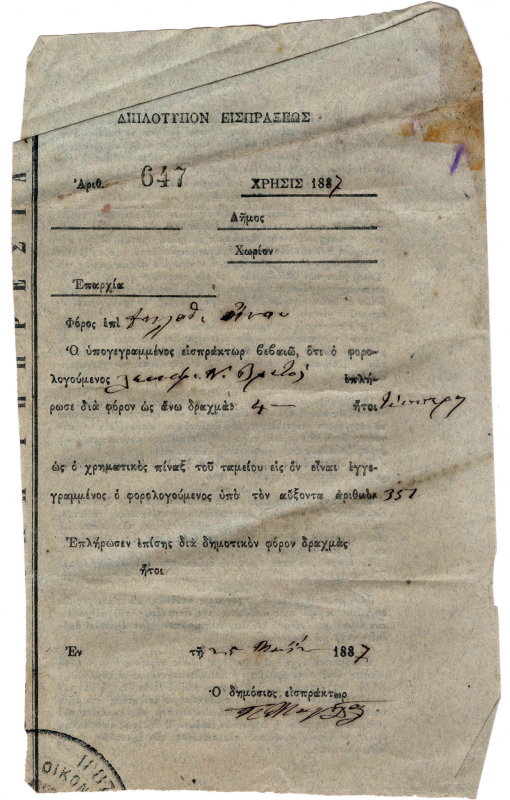 ΔΙΠΛΟΤΥΠΟΝ ΕΙΣΠΡΑΞΕΩΣ
Ἀριθ. 647
ΧΡΗΣΙΣ 1887
Δῆμος
Χωρίον
Ἐπαρχία
Φόρος ἐπὶ
Ὁ ὑπογεγραμμένος εἰσπράκτωρ βεβαιῶ, ὅτι ὁ φορο-
λογούμενος ἐπλή-
ρωσε διὰ φόρον ὡς ἄνω δραχμὰς 4 — ἤτοι
ὡς ὁ χρηματικὸς πίναξ τοῦ ταμείου εἰς ὃν εἶναι ἐγγε-
γραμμένος ὁ φορολογούμενος ὑπὸ τὸν αὔξοντα ἀριθμὸν 351
Ἐπλήρωσεν ἐπίσης διὰ δημοτικὸν φόρον δραχμὰς
ἤτοι
Ἐν τῇ 25 1887
Ὁ δημόσιος εἰσπράκτωρ
1887
ΟΙΚΟΝ